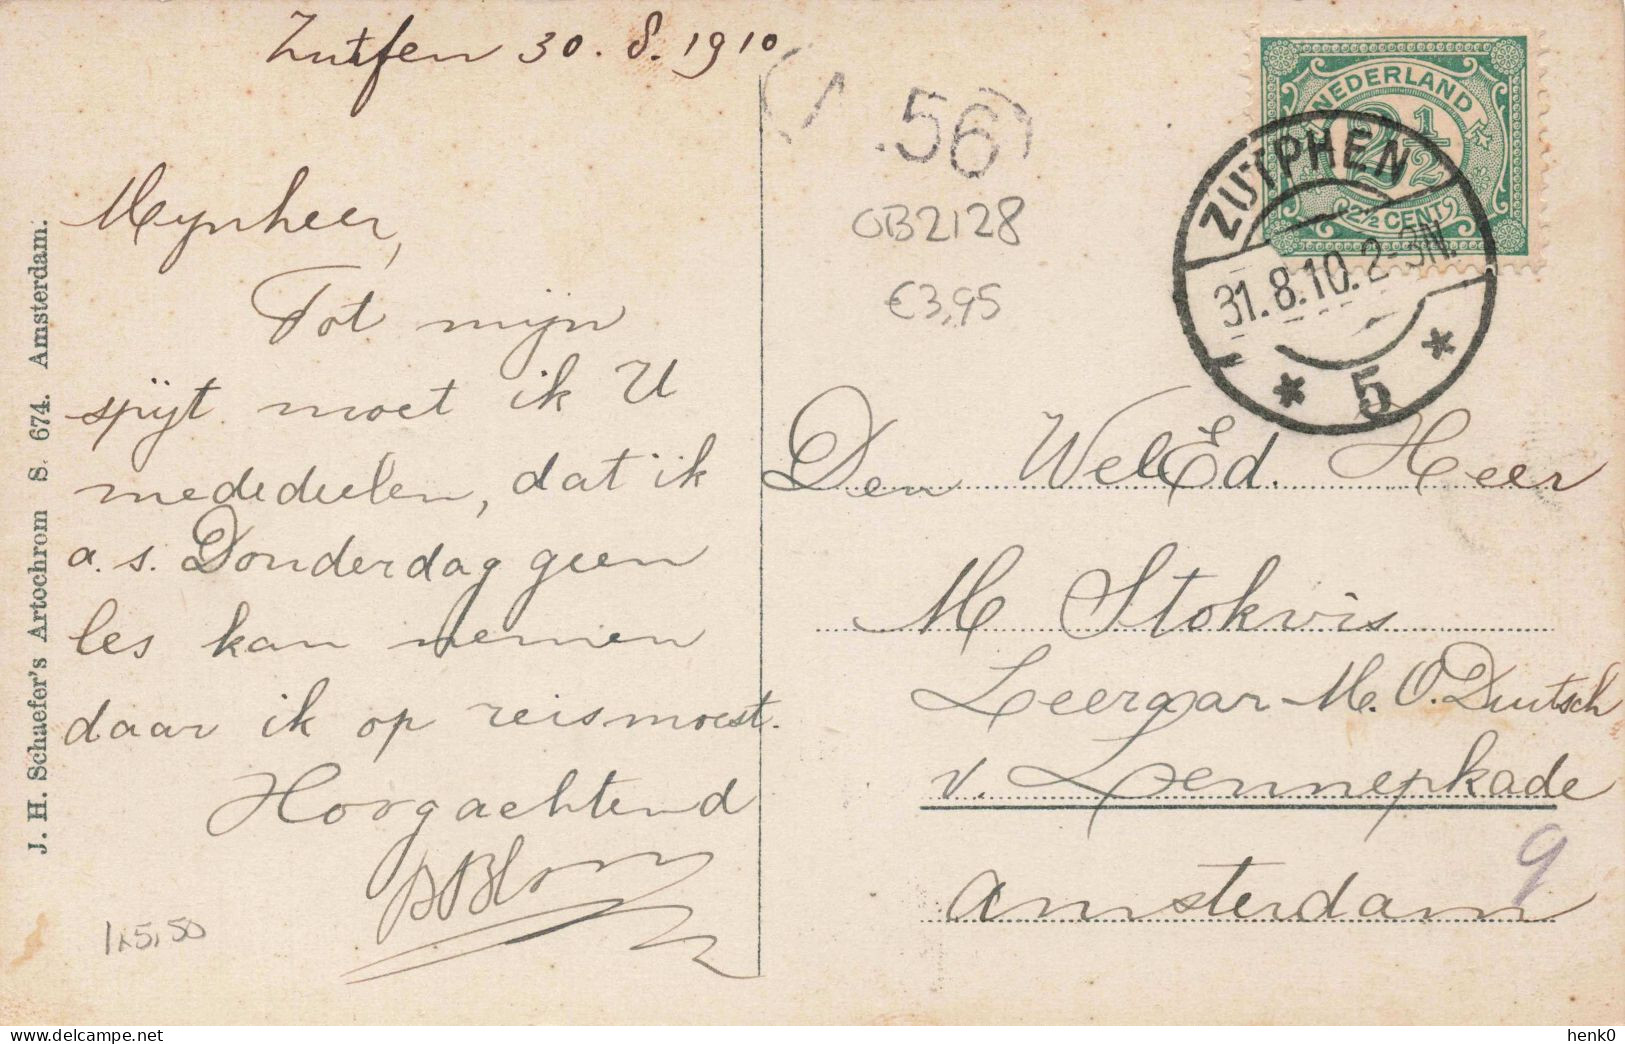 Zutfen 30. 8. 1910
Mynheer,
Tot mijn
spijt moet ik U
mededeelen, dat ik
a. s. Donderdag geen
les kan nemen
daar ik op reis moest.
Hoogachtend
1x5,50
J. H. Schaefer's Artochrom S. 674. Amsterdam.
.56
OB2128
€3,95
NEDERLAND
2½
2½ CENT
ZUTPHEN
31.8.10. 2-3N.
* 5 *
Den WelEd. Heer
M Stokvis
Leeraar M. O. Duitsch
v. Lennepkade
9
Amsterdam
henk0